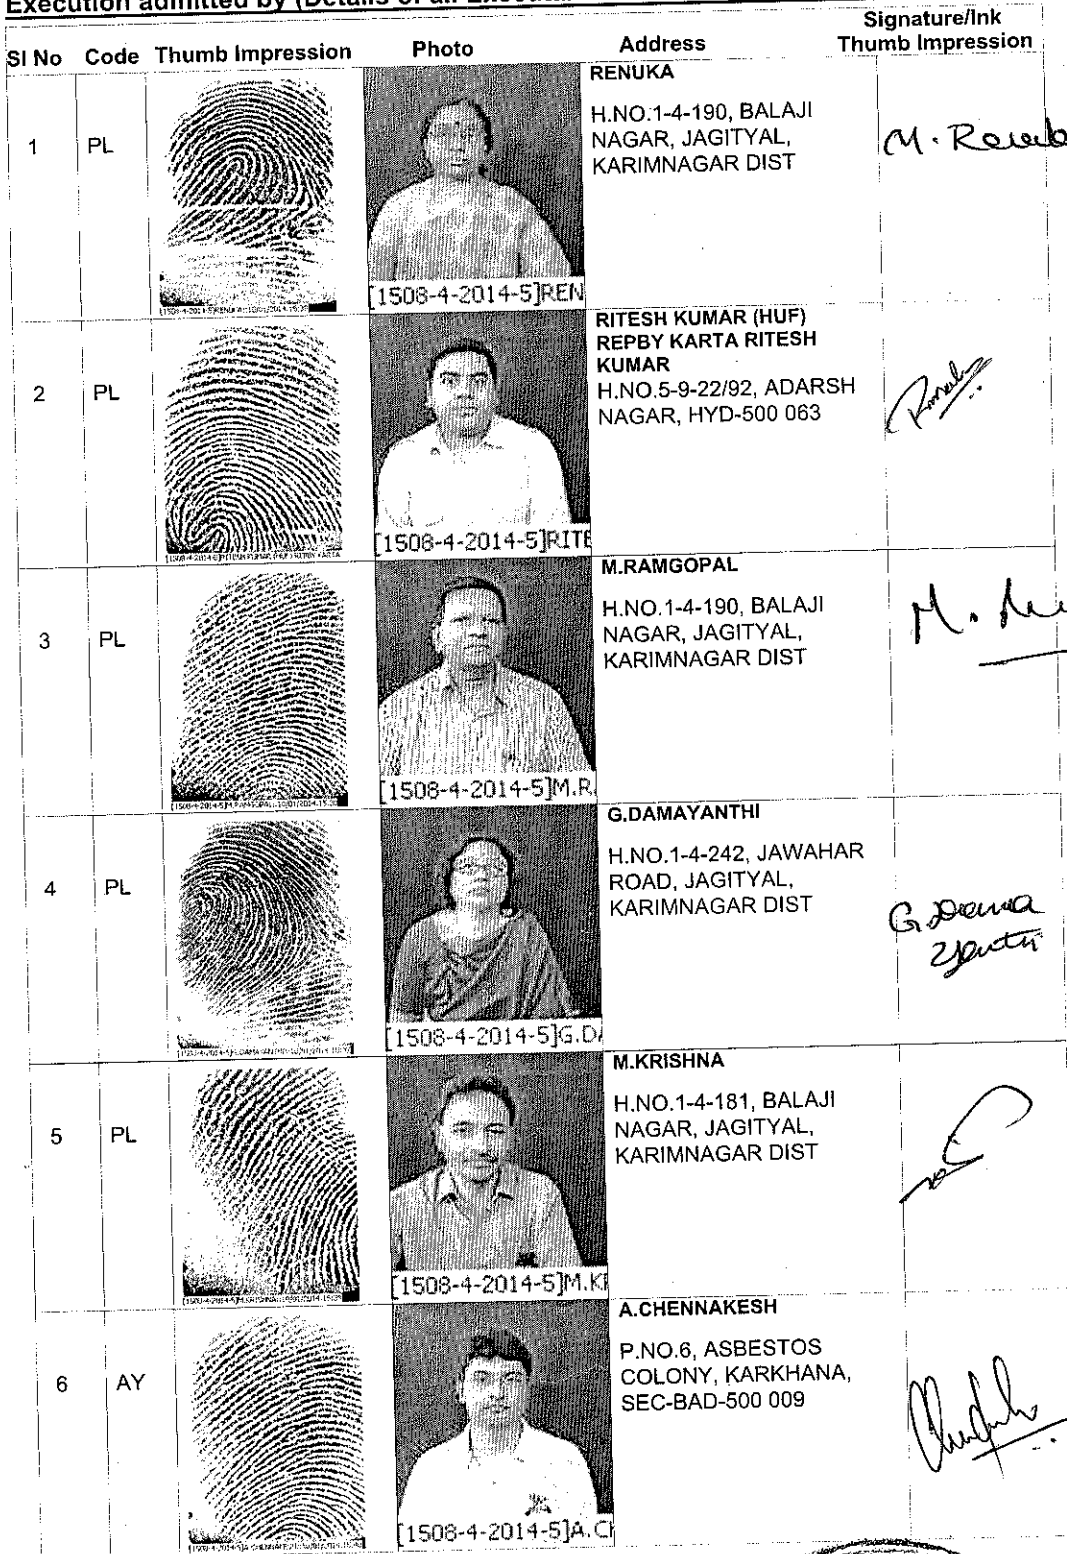 Execution admitted by (Details of all
Sl No Code Thumb Impression Photo Address Signature/Ink
Thumb Impression
1 PL
RENUKA
H.NO.1-4-190, BALAJI
NAGAR, JAGITYAL,
KARIMNAGAR DIST
M.
[1508-4-2014-5]REN
2 PL
RITESH KUMAR (HUF)
REPBY KARTA RITESH
KUMAR
H.NO.5-9-22/92, ADARSH
NAGAR, HYD-500 063
[1508-4-2014-5]RITE
3 PL
M.RAMGOPAL
H.NO.1-4-190, BALAJI
NAGAR, JAGITYAL,
KARIMNAGAR DIST
M.
[1508-4-2014-5]M.R
4 PL
G.DAMAYANTHI
H.NO.1-4-242, JAWAHAR
ROAD, JAGITYAL,
KARIMNAGAR DIST
G.Dama
yanthi
[1508-4-2014-5]G.DA
5 PL
M.KRISHNA
H.NO.1-4-181, BALAJI
NAGAR, JAGITYAL,
KARIMNAGAR DIST
[1508-4-2014-5]M.KR
6 AY
A.CHENNAKESH
P.NO.6, ASBESTOS
COLONY, KARKHANA,
SEC-BAD-500 009
[1508-4-2014-5]A.CH